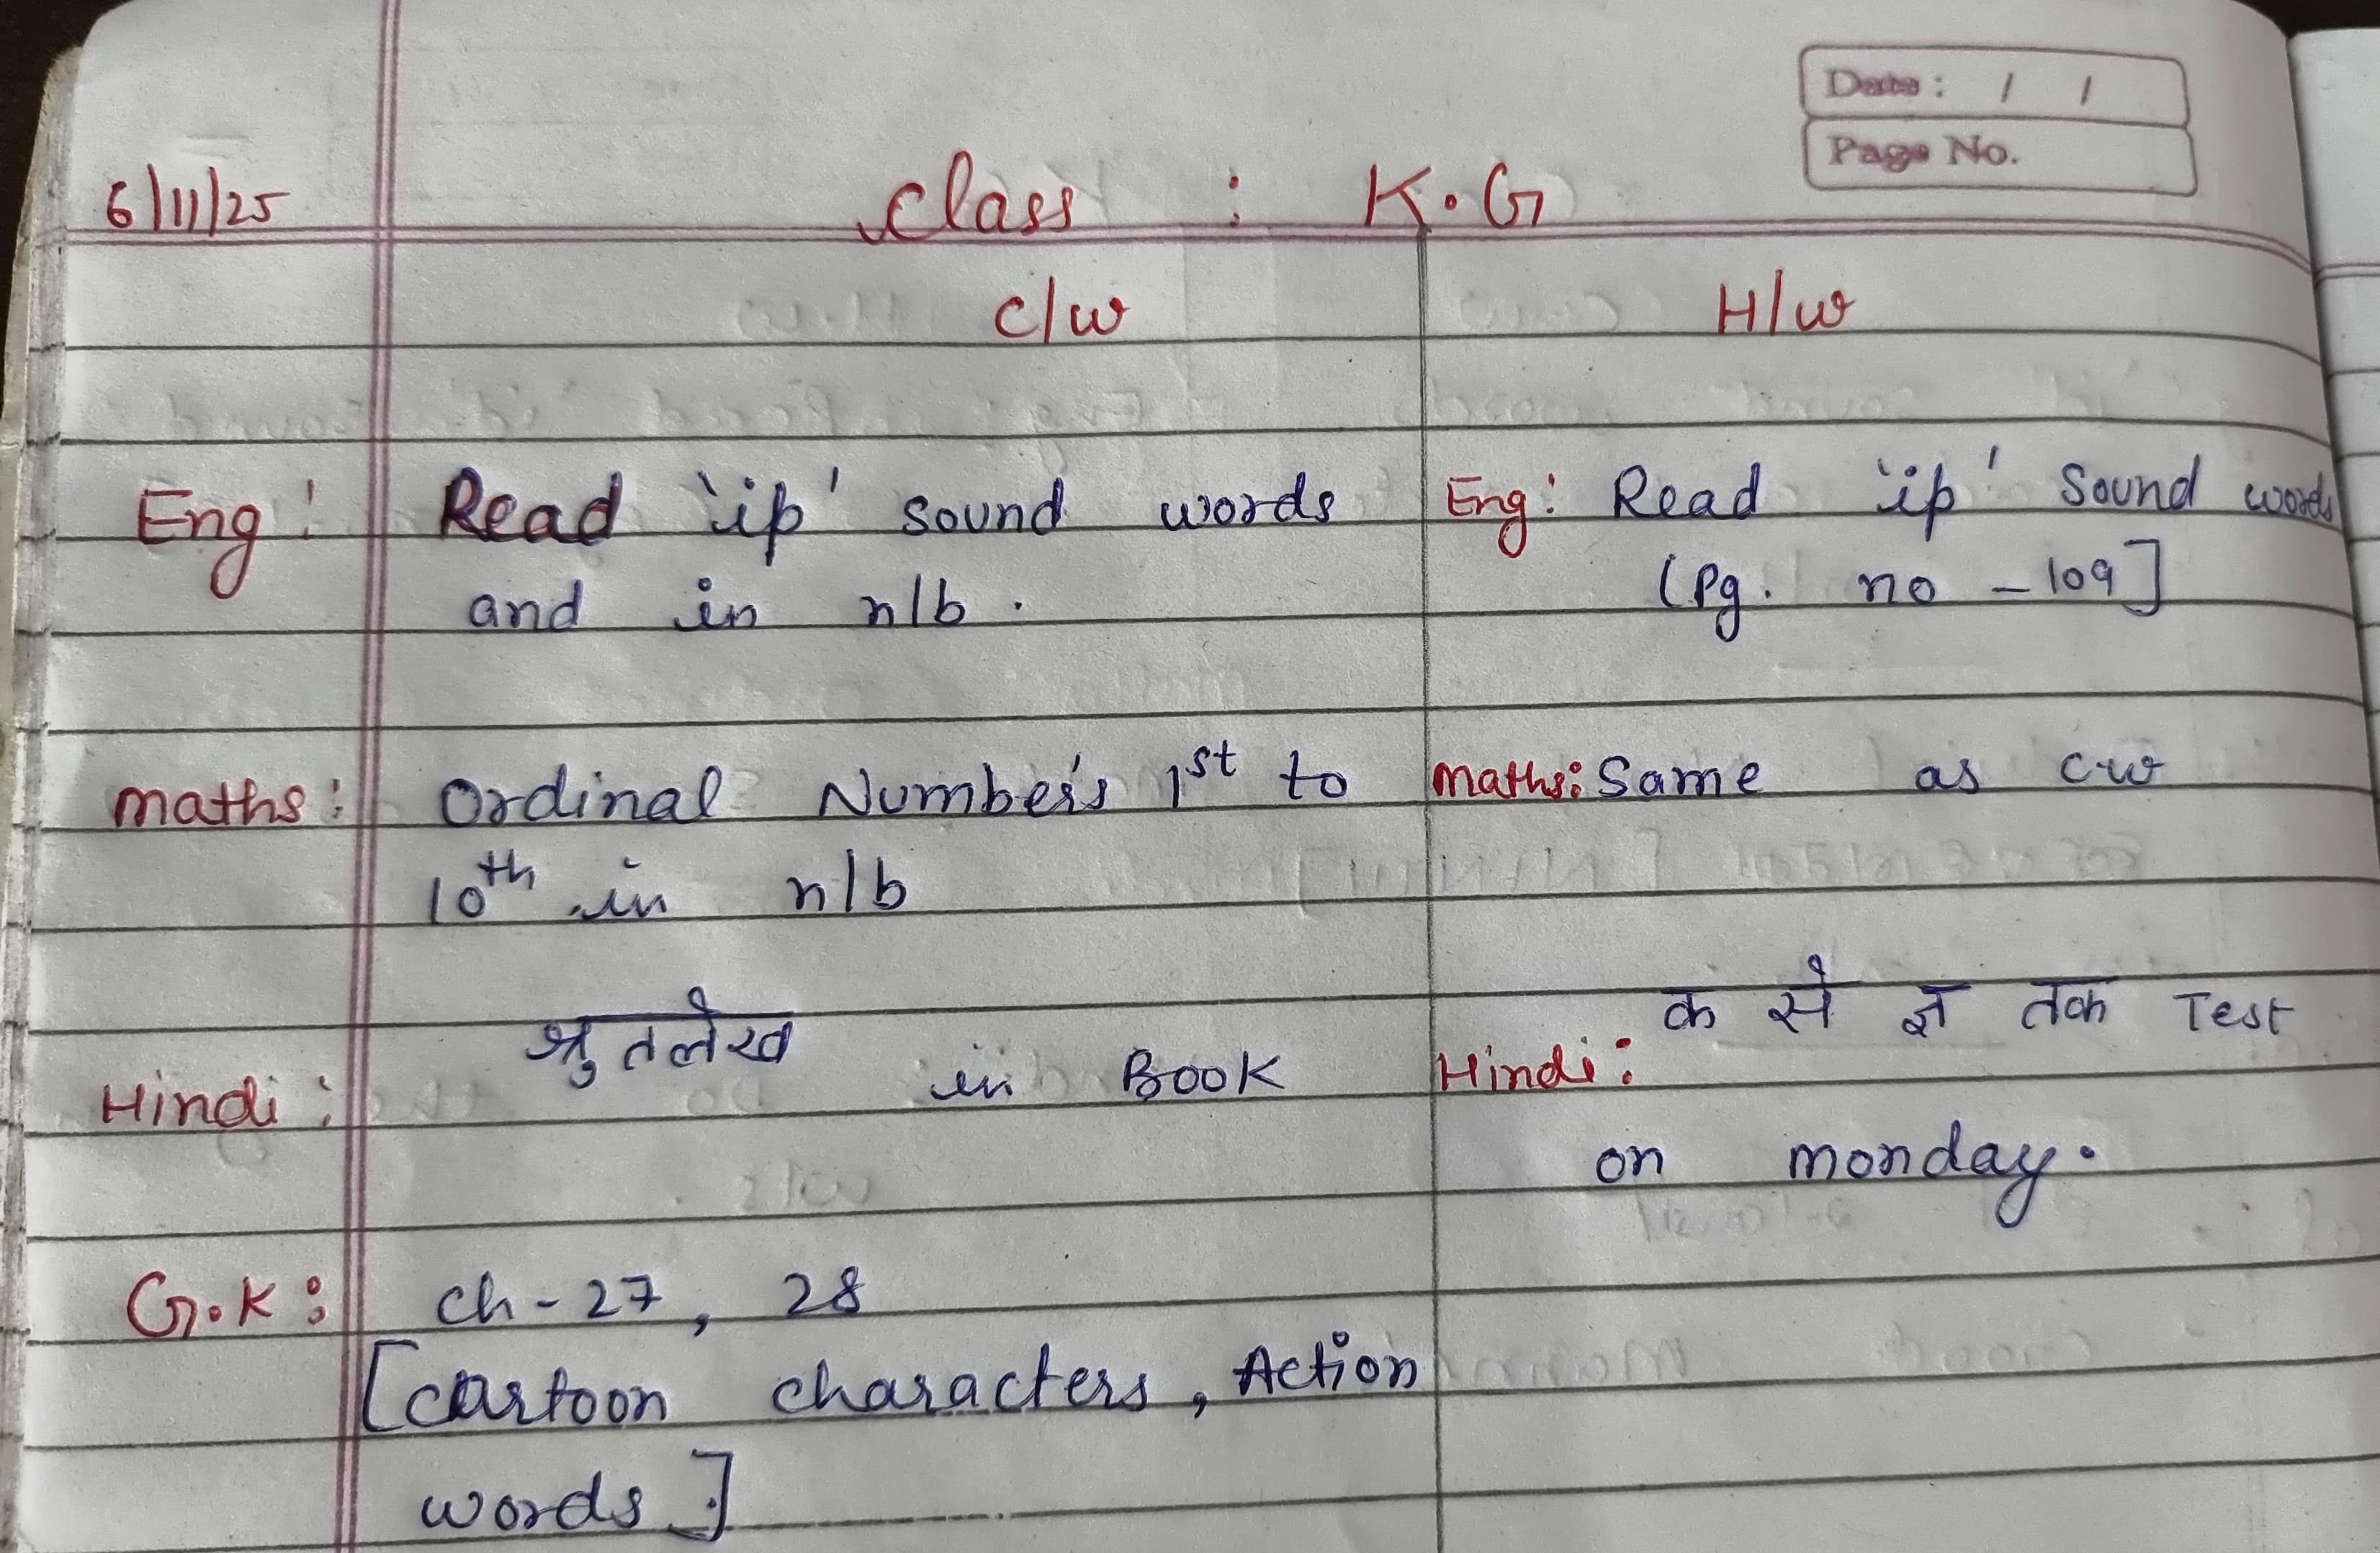 Date : / /
Page No.
6/11/25 Class : K.G
C/w H/w
Eng: Read 'ip' sound words Eng: Read 'ip' Sound words
and in n/b. (Pg. no - 109]
Maths: Ordinal Number's 1st to Maths: Same as c.w
10th in n/b
Hindi: श्रुतलेख in Book Hindi: क से ज्ञ तक Test
on monday.
G.K: Ch - 27, 28
[cartoon characters, Action
words.]